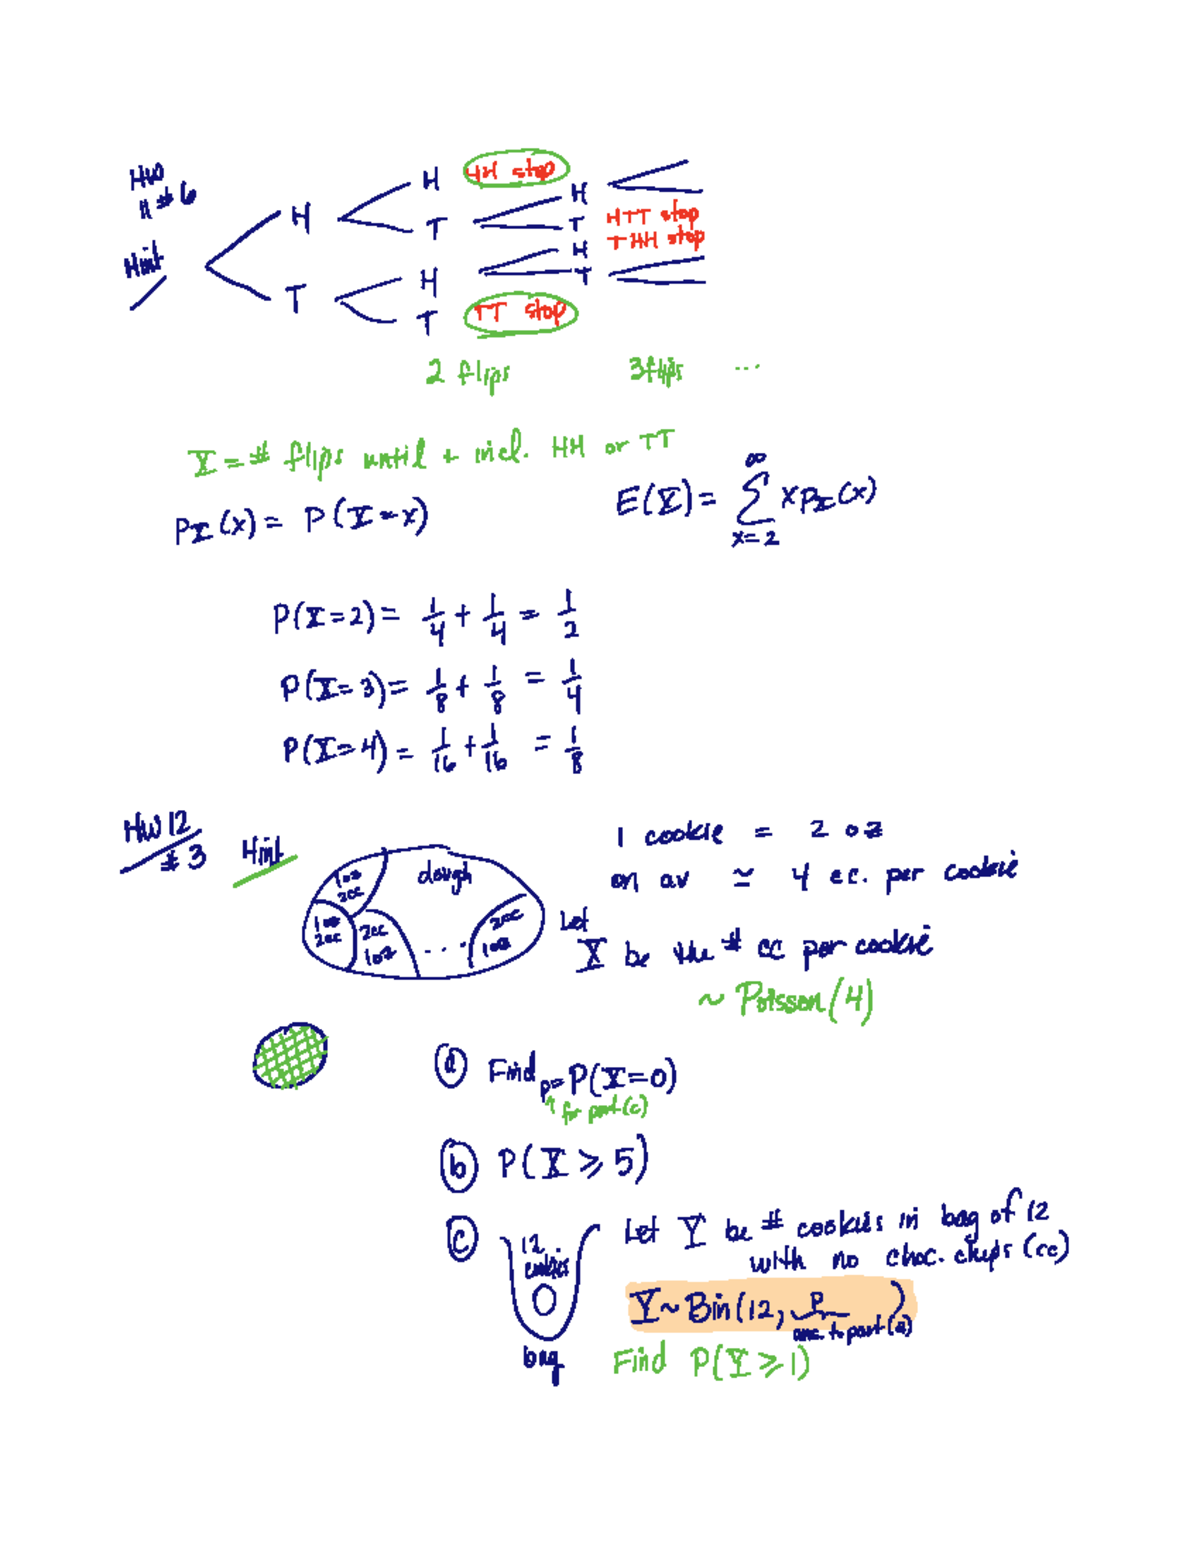 HW
11 #6
Hint
H
T
H
T
H
T
HH stop
TT stop
H
T
H
T
HTT stop
THH stop
2 flips 3 flips ...
X = # flips until + incl. HH or TT
pX(x) = P(X=x) E(X) = ∞ Σ x=2 x pX(x)
P(X=2) = 1/4 + 1/4 = 1/2
P(X=3) = 1/8 + 1/8 = 1/4
P(X=4) = 1/16 + 1/16 = 1/8
HW 12
#3
Hint
dough
1oz
2cc
1oz
2cc
2cc
1oz
...
2cc
1oz
1 cookie = 2 oz
on av ≃ 4 cc. per cookie
Let
X be the # cc per cookie
~ Poisson(4)
a Find p= P(X=0)
↑ for part(c)
b P(X ≥ 5)
c
12
cookies
bag
Let Y be # cookies in bag of 12
with no choc. chips (cc)
Y ~ Bin(12, p )
ans. to part(a)
Find P(Y ≥ 1)